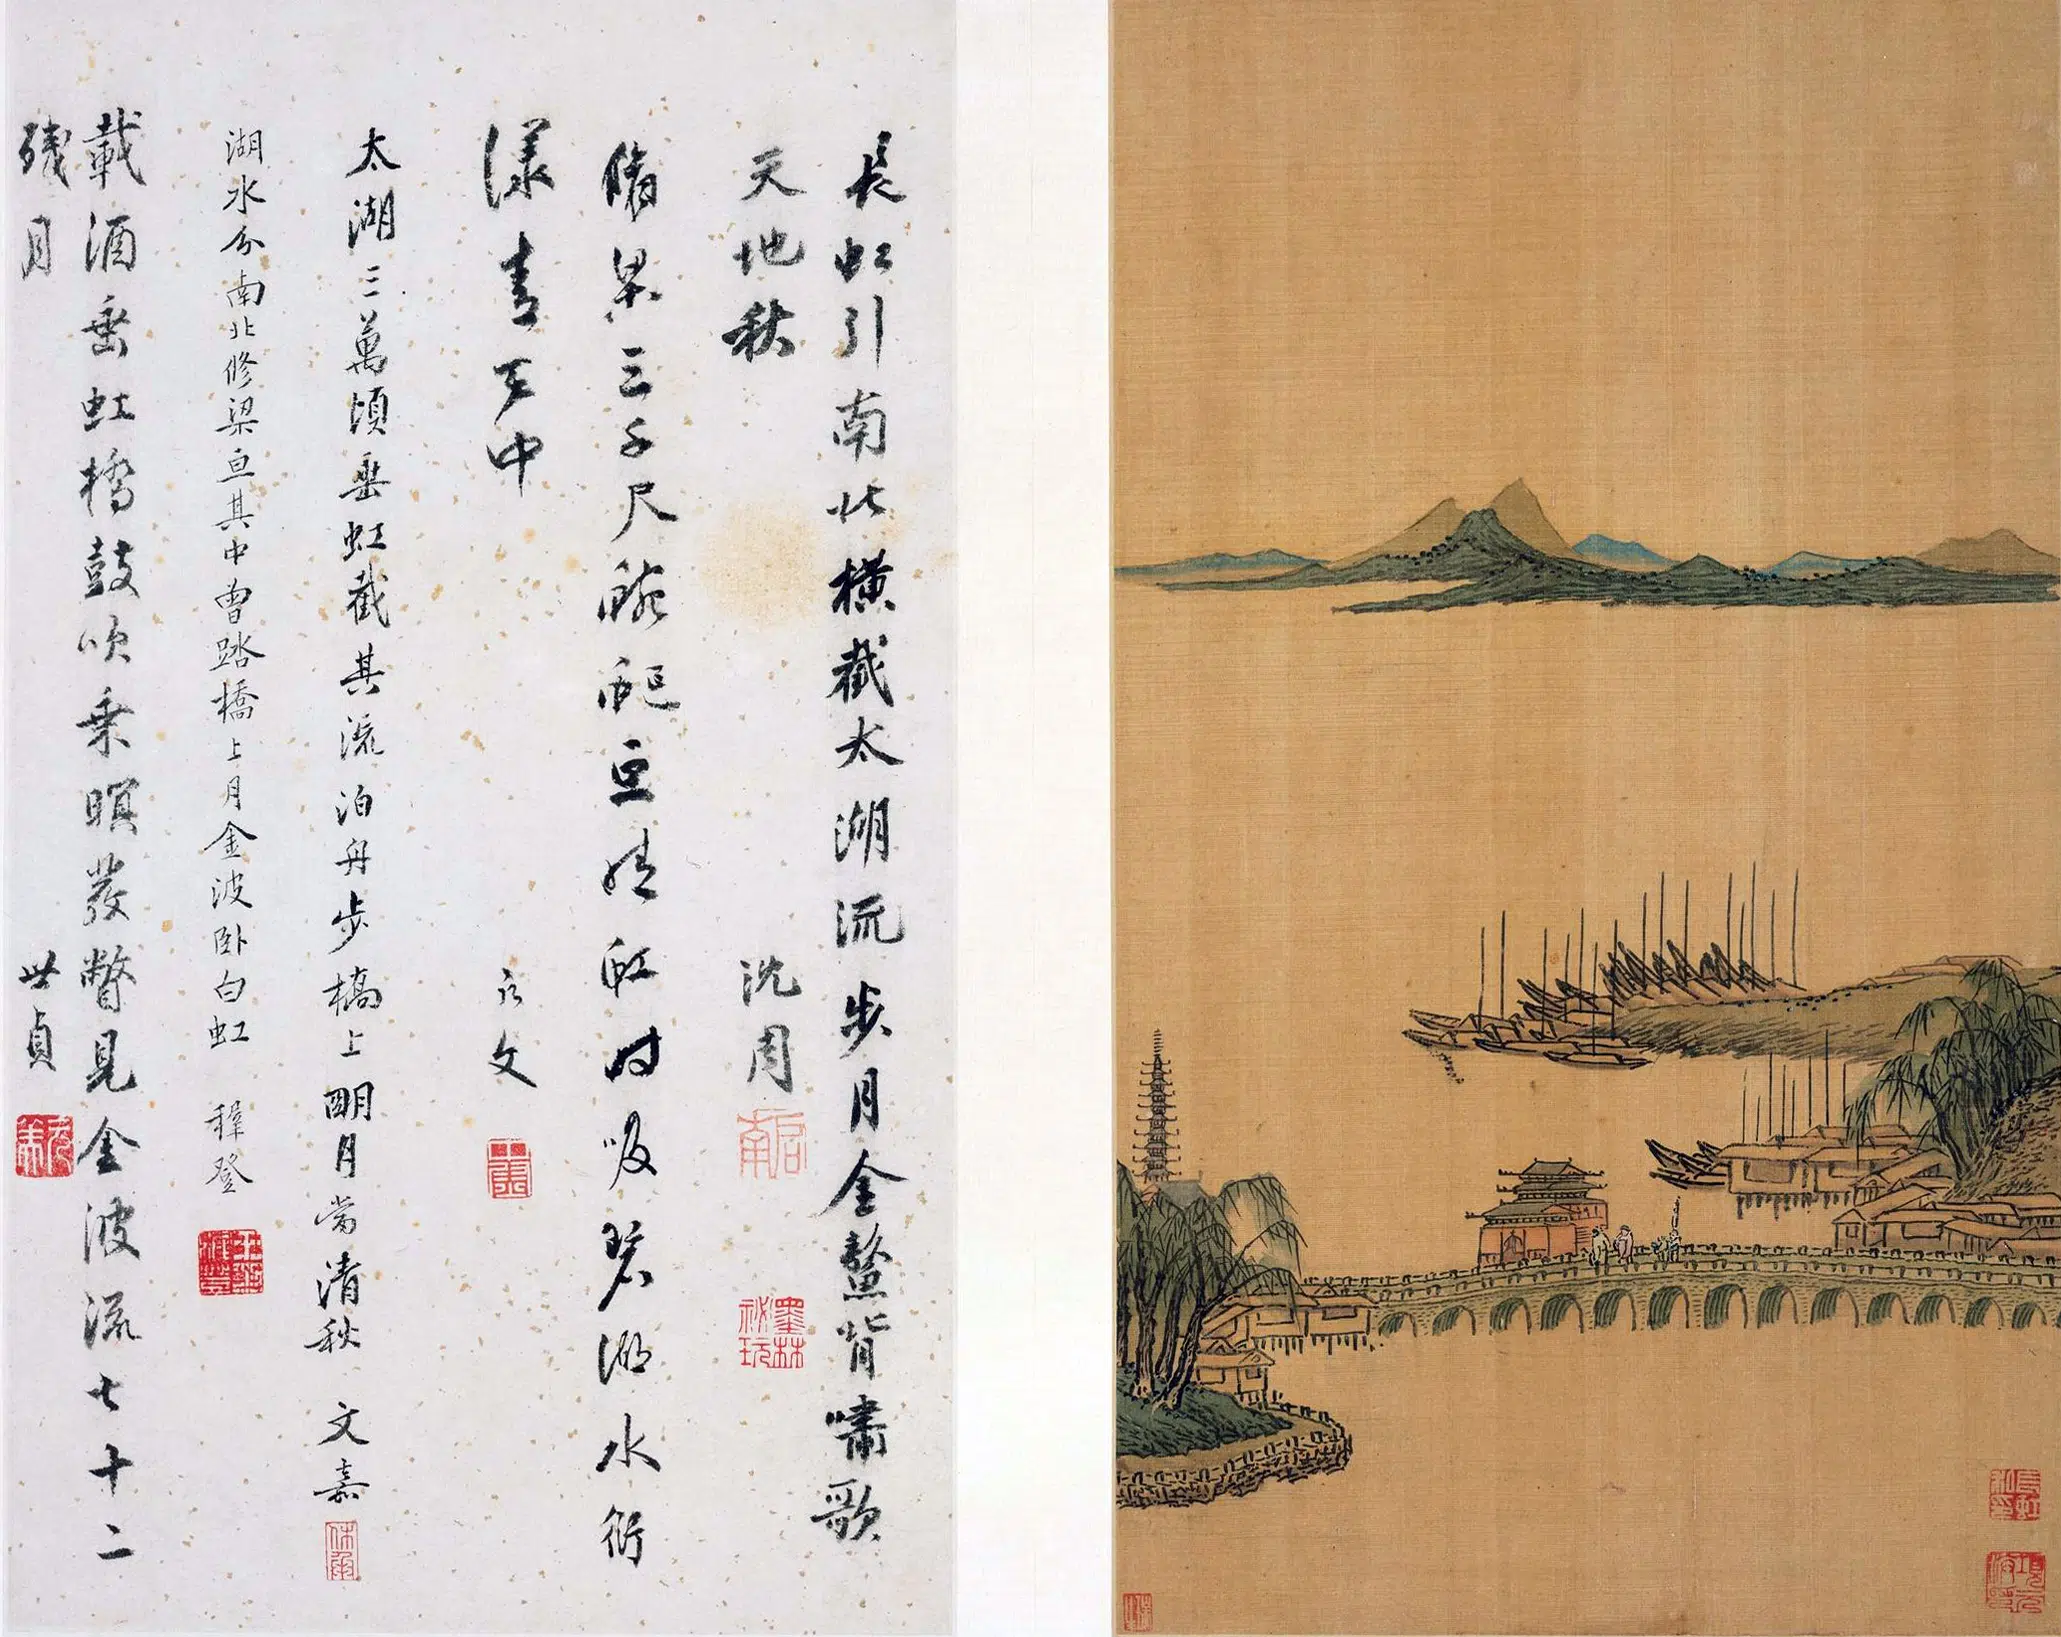 長虹引南北橫截太湖流步月金鰲背嘯歌
天地秋 沈周
啟南
墨林祕玩
脩梁三千尺蜿蜒亘晴虹時吸碧湖水衍
漾青天中 文
太湖三萬頃垂虹截其流泊舟步橋上朙月當清秋 文嘉
休承
湖水分南北修梁亘其中曾踏橋上月金波卧白虹 穉登
載酒垂虹橋鼓吹乘暝發瞥見金波流七十二
殘月 世貞
元美